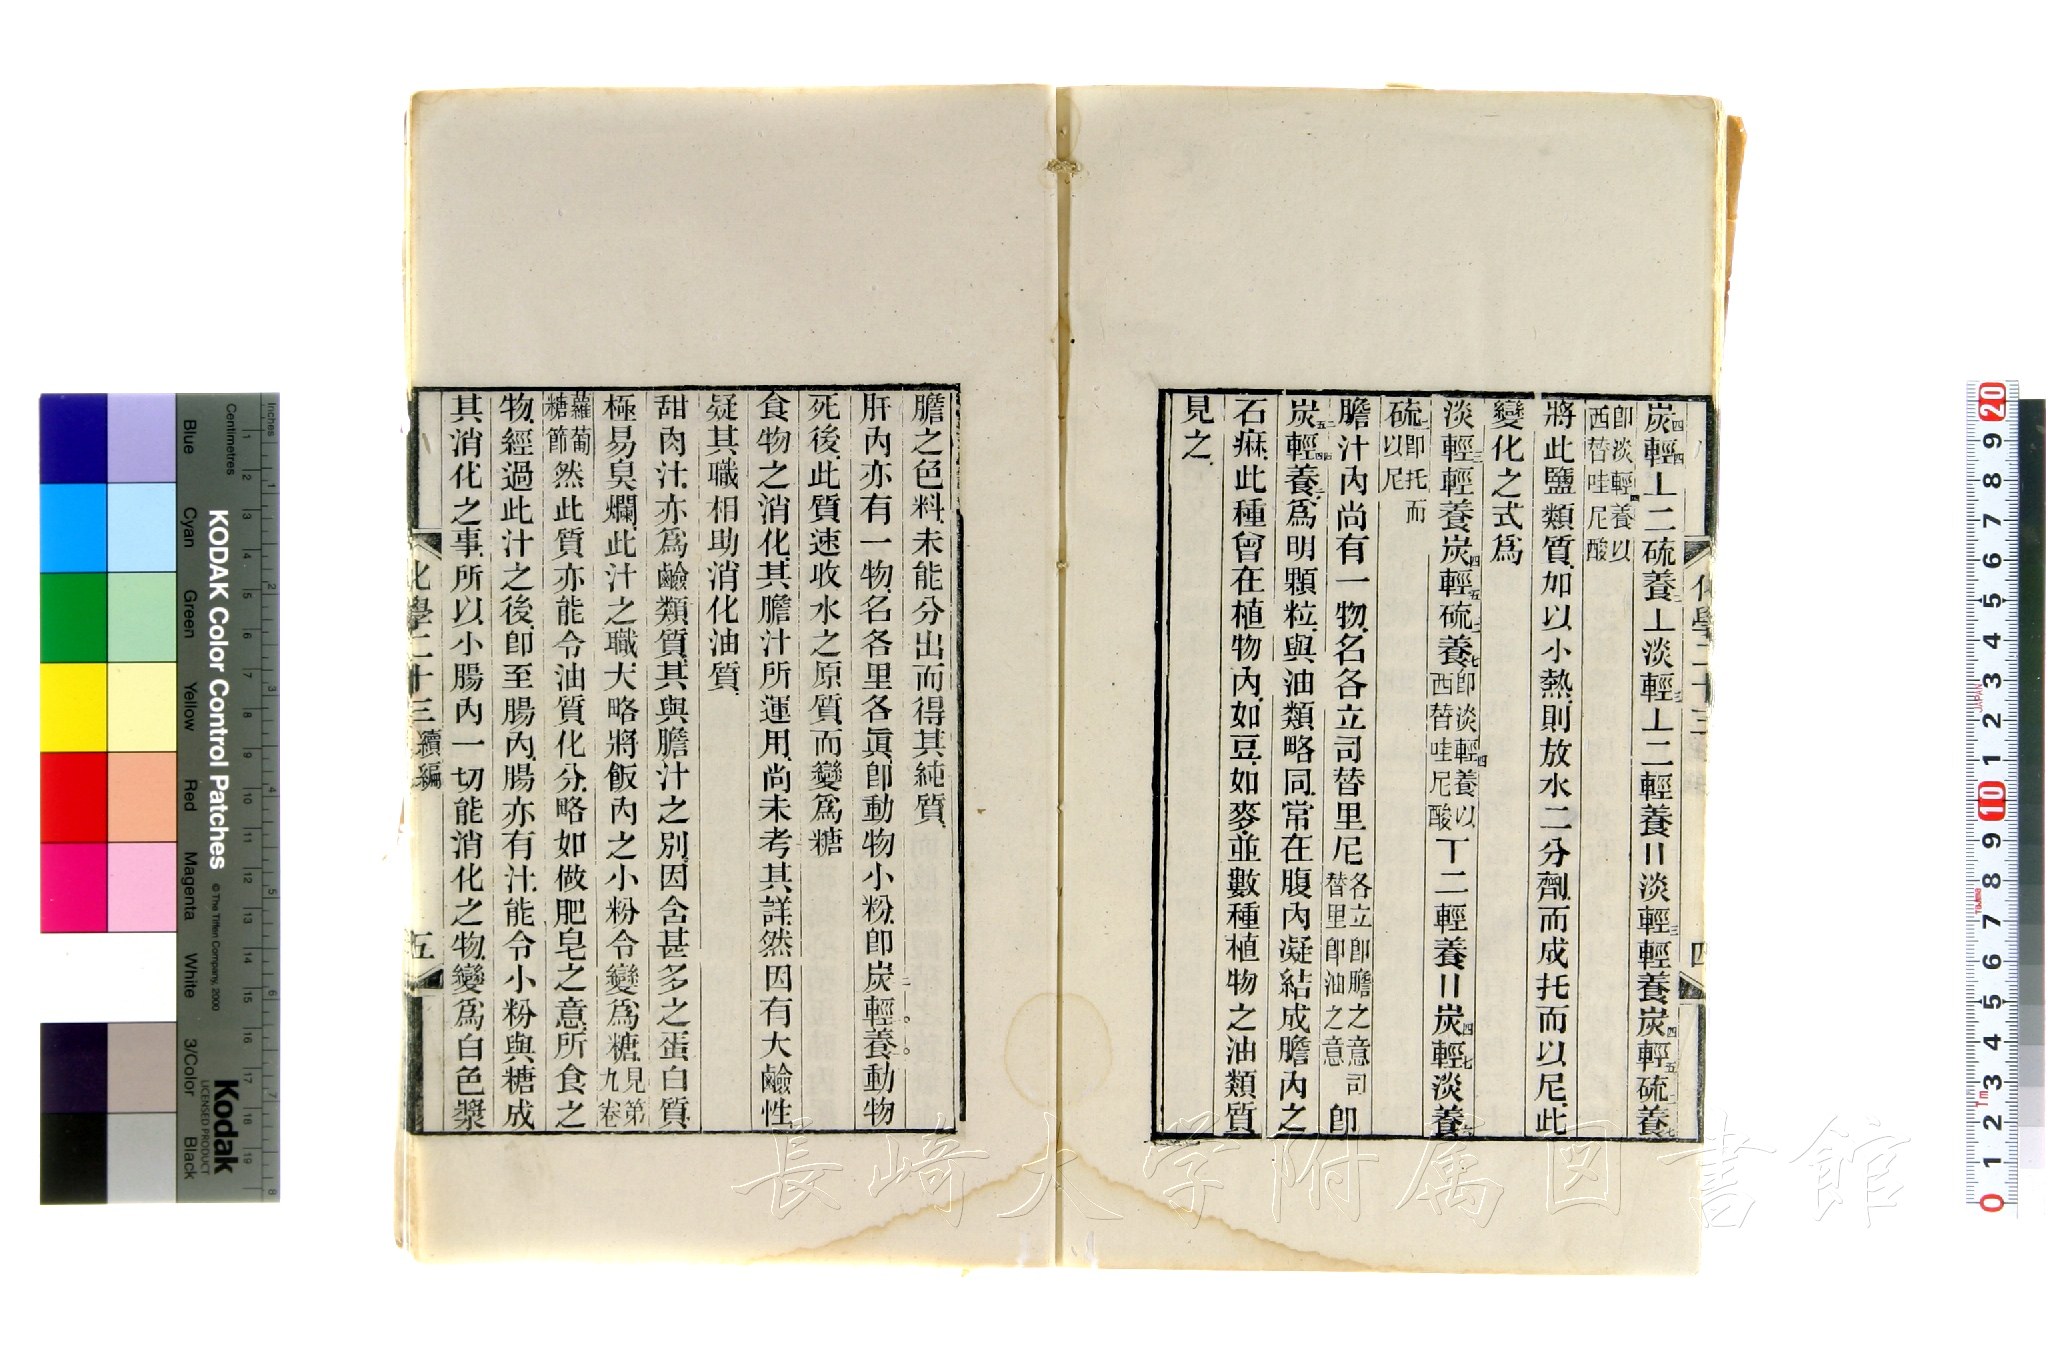 化學二十三
四
炭四輕四丄二硫養三丄淡輕三丄二輕養〢淡輕三輕養炭四輕五硫二養七
卽淡輕四養以西替哇尼酸
將此鹽類質加以小熱則放水二分劑而成托而以尼此
變化之式爲
淡輕三輕養炭四輕五硫二養七卽淡輕四養以西替哇尼酸丅二輕養〢炭四輕七淡養六
硫二卽托而以尼
膽汁內尚有一物名各立司替里尼各立卽膽之意司替里卽油之意卽
炭五二輕四四養二爲明顆粒與油類略同常在腹內凝結成膽內之
石痳此種曾在植物內如豆如麥並數種植物之油類質
見之
膽之色料未能分出而得其純質
肝內亦有一物名各里各眞卽動物小粉卽炭一二輕一〇養一〇動物
死後此質速收水之原質而變爲糖
食物之消化其膽汁所運用尚未考其詳然因有大鹼性
疑其職相助消化油質
甜肉汁亦爲鹼類質其與膽汁之別因含甚多之蛋白質
極易臭爛此汁之職大略將飯內之小粉令變爲糖見第九卷
蘿蔔糖節然此質亦能令油質化分略如做肥皂之意所食之
物經過此汁之後卽至腸內腸亦有汁能令小粉與糖成
其消化之事所以小腸內一切能消化之物變爲白色漿
化學二十三續編
五
長崎大学附属図書館
KODAK Color Control Patches
© The Tiffen Company, 2000
Kodak
LICENSED PRODUCT
Inches
Centimetres
Blue
Cyan
Green
Yellow
Red
Magenta
White
3/Color
Black